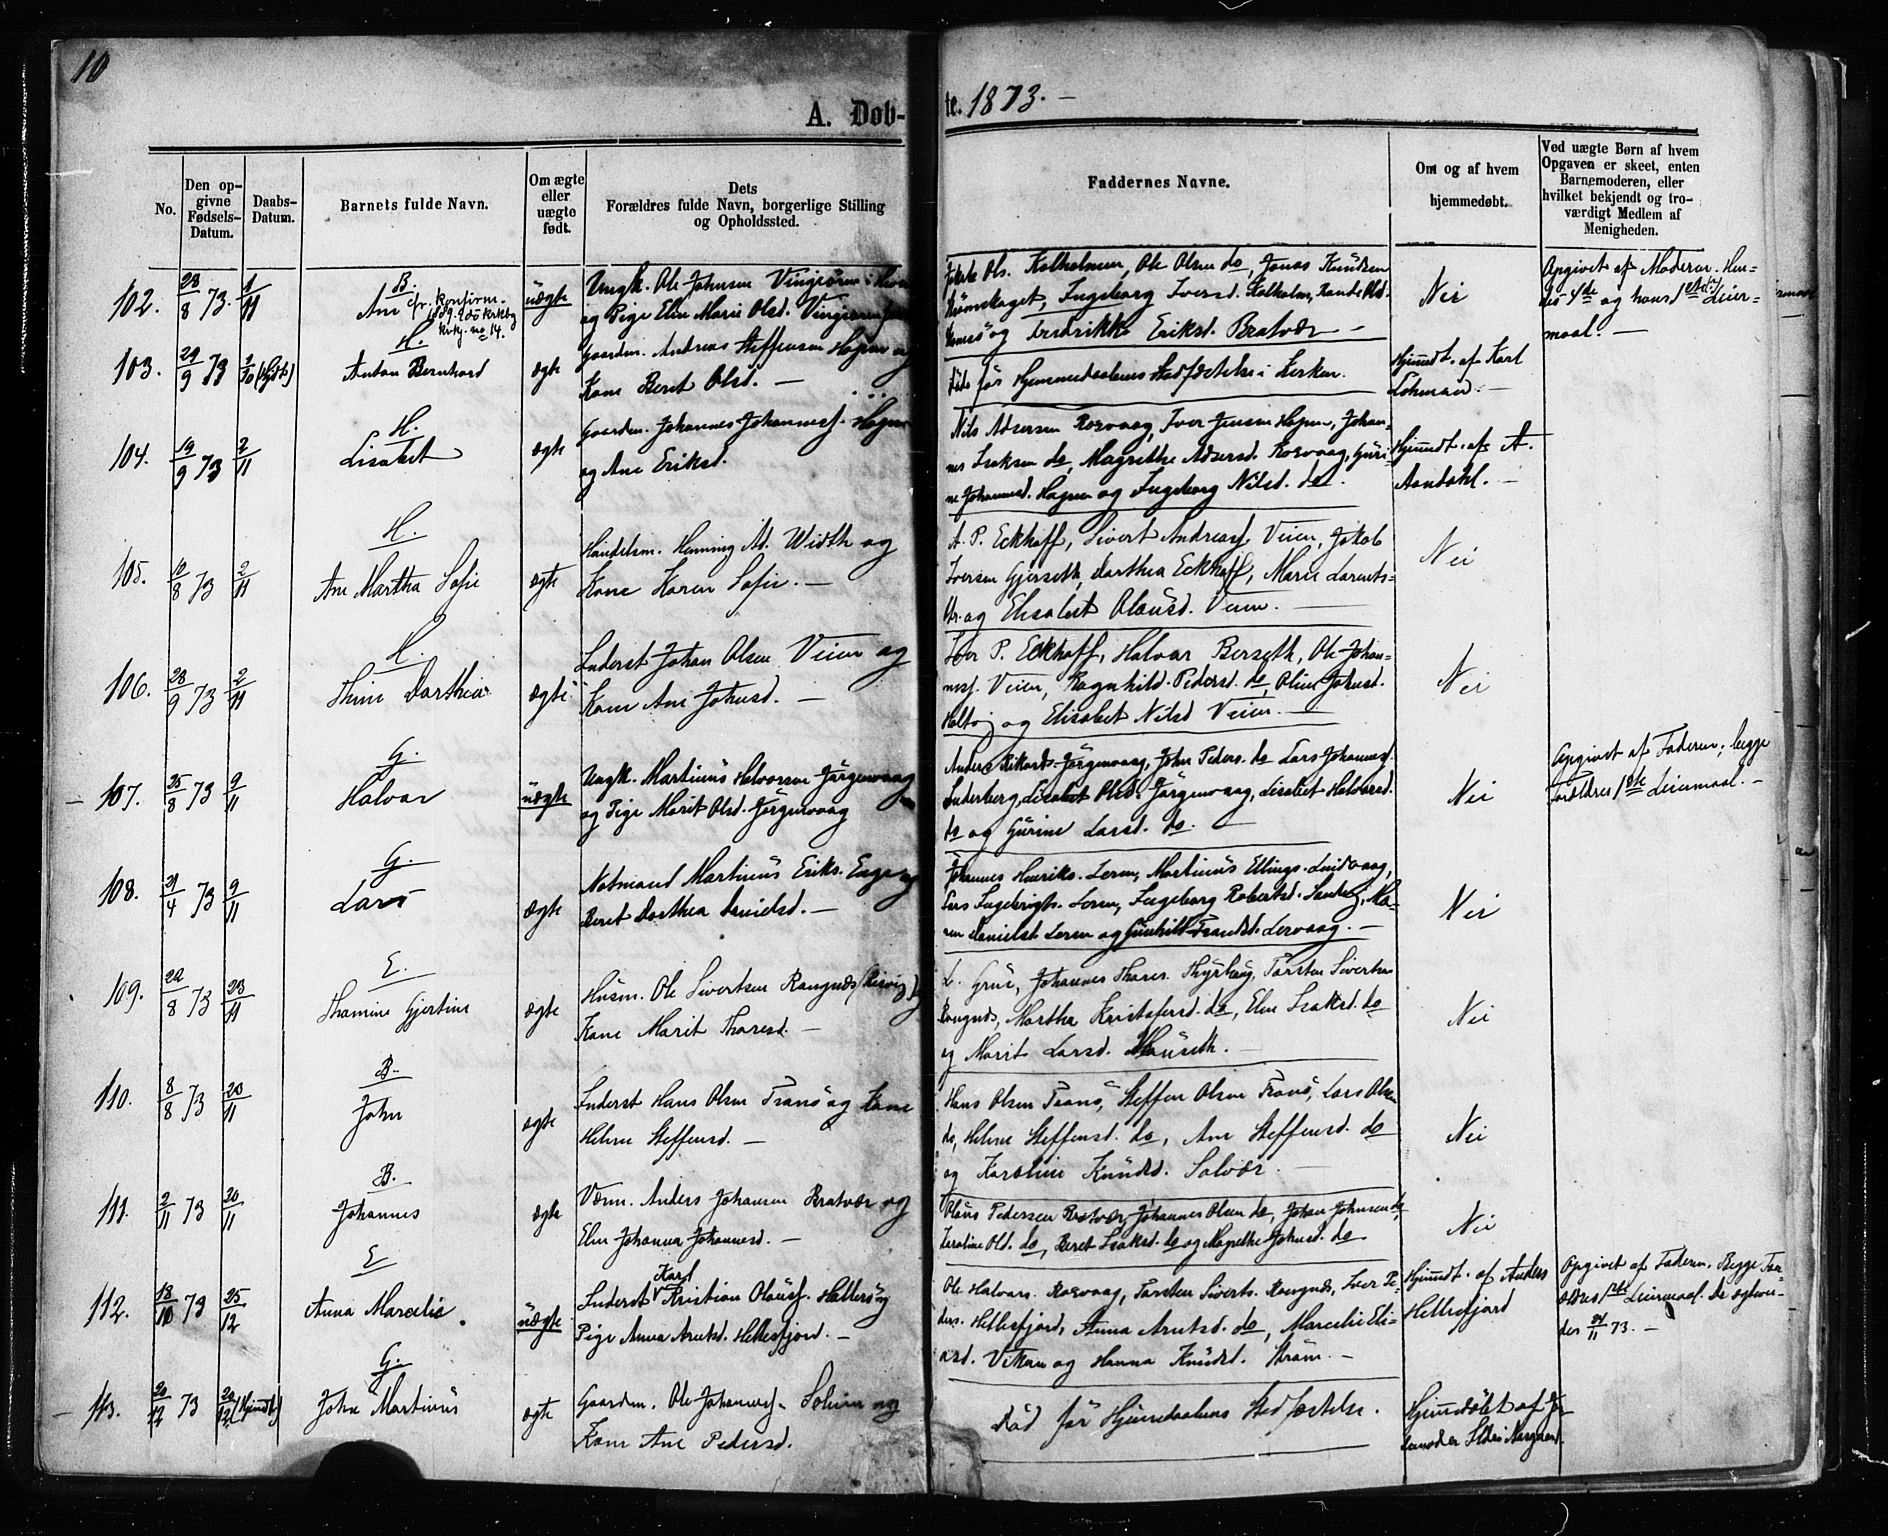 10
A. Døb-
te. 1873. —
No.
Den op-
givne
Fødsels-
Datum.
Daabs-
Datum.
Barnets fulde Navn.
Om ægte
eller
uægte
født.
Dets
Forældres fulde Navn, borgerlige Stilling
og Opholdssted.
Faddernes Navne.
Om og af hvem
hjemmedøbt.
Ved uægte Børn af hvem
Opgaven er skeet, enten
Barnemoderen, eller
hvilket bekjendt og tro-
værdigt Medlem af
Menigheden.
102. 28/8 73. 1/11
B.
Ane cfr. konfirm.
1889.
krkg. no 14.
uægte
Ungk. Ole Johnsen
og Pige Elen Marie Olsd.
Kalholmen, Ole Olsen do, Jonas Knudsen
Ingeborg Iversd. Kalholm,
og Fredrikke Eriksd. Bratvær —
Nei
Opgivet af Moderen. Hen-
des 4de og hans 1ste Leier-
maal. —
103. 29/9 73 2/10 (Hjdt)
H.
Anton Bernhard
ægte
Gaardm. Andreas Steffensen Hopen og
Kone Beret Olsd. —
Død før Hjemmedaabens Stadfæstelse i Kirken.
Hjemdt. af Karl
Lohman. —
104. 19/9 73 2/11
H.
Lisabet
ægte
Gaardm. Johannes Johannesf. Hopen
og Ane Eriksd.
Nils Adsersen Rosvaag, Iver Jensen Hopen, Johan-
nes Isaksen do, Magrethe Adsersd. Rosvaag, Guri-
ne Johannesd. Hopen og Ingeborg Nilsd. do.
Hjemdt. af A.
Aandahl. —
105. 10/8 73 2/11
H.
Ane Martha Sofie
ægte
Handelsm. Henning Ad. Width og
Kone Karen Sofie. —
A. P. Eckhoff, Sivert Andreasf. Veien, Jakob
Iversen Gjerseth, Darthea Eckhoff, Marie Lorents-
dr. og Elisabet Olausd. Veien. —
Nei
106. 28/9 73 2/11
H.
Thine Darthea
ægte
Inderst Johan Olsen Veien og
Kone Ane Johnsd. —
Iver P. Eckhoff, Halvar Berseth, Ole Johan-
nesf. Veien, Ragnhild Pedersd. do, Oline Johnsd.
og Elisabet Nilsd Veien. —
Nei
107. 25/8 73 9/11
G.
Halvar
uægte
Ungk. Martinus Halvorsen Jørgenvaag
og Pige Marit Olsd. Jørgenvaag
Anders Rikards. Jørgenvaag, John Peders. do Lars Johannesf.
Inderberg, Lisabet Olsd. Jørgenvaag, Lisabet Halvarsd.
do og Gurine Larsd. do. —
Nei
Opgivet af Faderen; begge
Forældres 1ste Leiermaal. —
108. 21/4 73 9/11
G.
Lars
ægte
Notmand Martinus Eriks. Enge og
Beret Darthea Danielsd. —
Johannes Henriks. Leren, Martinus Ellings.
Lars Ingebrigts. Leren, Ingeborg Robertsd.
Danielsd. Leren og Gunhild Frantsd. Lervaag. —
Nei
109. 22/8 73 23/11
E.
Thamine Gjertine
ægte
Husm. Ole Sivertsen Rangnæs
Kone Marit Tharesd. —
L. Grue, Johannes Thares. Thyrhaug, Tarsten Sivertsen
Rangnæs, Martha Kristofersd. do, Elen Isaksd. do
og Marit Larsd. Mauseth. —
Nei
110. 8/8 73 20/11
B.
John
ægte
Inderst Hans Olsen Tranø og Kone
Helene Steffensd. —
Hans Olsen Tranø, Steffen Olsen Tranø, Lars Olsen
do, Helene Steffensd. do, Ane Steffensd. do
og Karoline Knudsd. Solvær. —
Nei
111. 2/11 73 20/11
B.
Johannes
ægte
Værm. Anders Johansen Bratvær og
Elen Johanna Johannesd. —
Olaus Pedersen Bratvær, Johannes Olsen do, Johan Johnsen do,
Karoline Old. do, Beret Isaksd. do og Magrethe Johnsd. do
Nei
112. 18/10 73 25/12
E
Anna Marcelie
uægte
Karl
Inderst Kristian Olausf.
Pige Anna Arntsd. Hellesfjord. —
Ole Halvars. Rosvaag, Tarsten Siverts. Rangnæs, Iver Pe-
ders. Hellesfjord, Anna Arntsd. do, Marcelie Eli-
asd. Vikan og Hanna Knudsd. Strøm. —
Hjemdt. af Anders
Hellesfjord
Opgivet af Faderen. Begge For-
ældres 1ste Leiermaal. De
73. —
113. 20/12 73 20/12 (Hjemdt)
G.
John Martinus
ægte
Gaardm. Ole Johannesf. Solem og
Kone Ane Pedersd.
Død før Hjemmedaabens Stadfæstelse.
Hjemmedøbt af Jor-
demoder